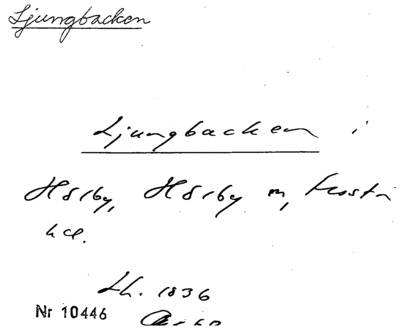 Ljungbacken
Ljungbacken i
Hörby, Hörby m, Frosta
hd.
Lh. 1836
Nr 10446